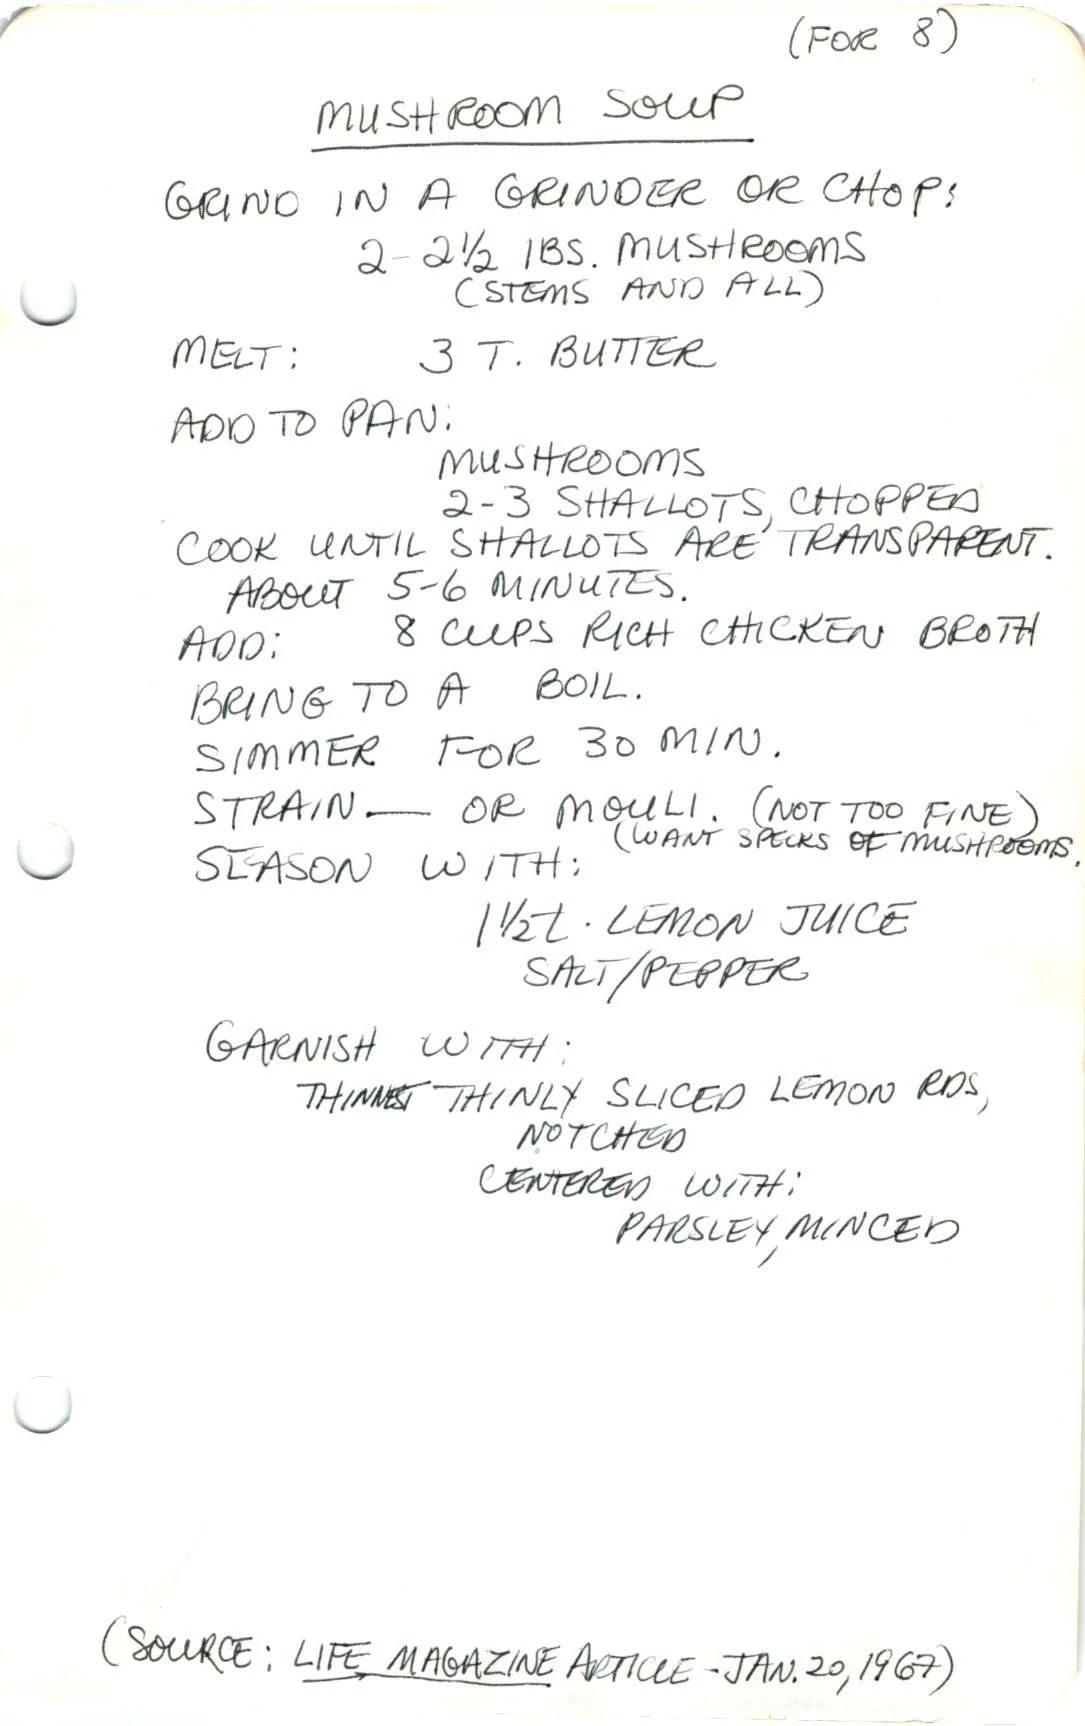 (FOR 8)
MUSHROOM SOUP
GRIND IN A GRINDER OR CHOP:
2-2½ lBS. MUSHROOMS
(STEMS AND ALL)
MELT: 3 T. BUTTER
ADD TO PAN:
MUSHROOMS
2-3 SHALLOTS, CHOPPED
COOK UNTIL SHALLOTS ARE TRANSPARENT.
ABOUT 5-6 MINUTES.
ADD: 8 CUPS RICH CHICKEN BROTH
BRING TO A BOIL.
SIMMER FOR 30 MIN.
STRAIN — OR MOULI. (NOT TOO FINE)
(WANT SPECKS OF MUSHROOMS.
SEASON WITH:
1½ t. LEMON JUICE
SALT/PEPPER
GARNISH WITH:
THINLY SLICED LEMON RDS,
NOTCHED
CENTERED WITH:
PARSLEY, MINCED
(SOURCE: LIFE MAGAZINE ARTICLE - JAN. 20, 1967)